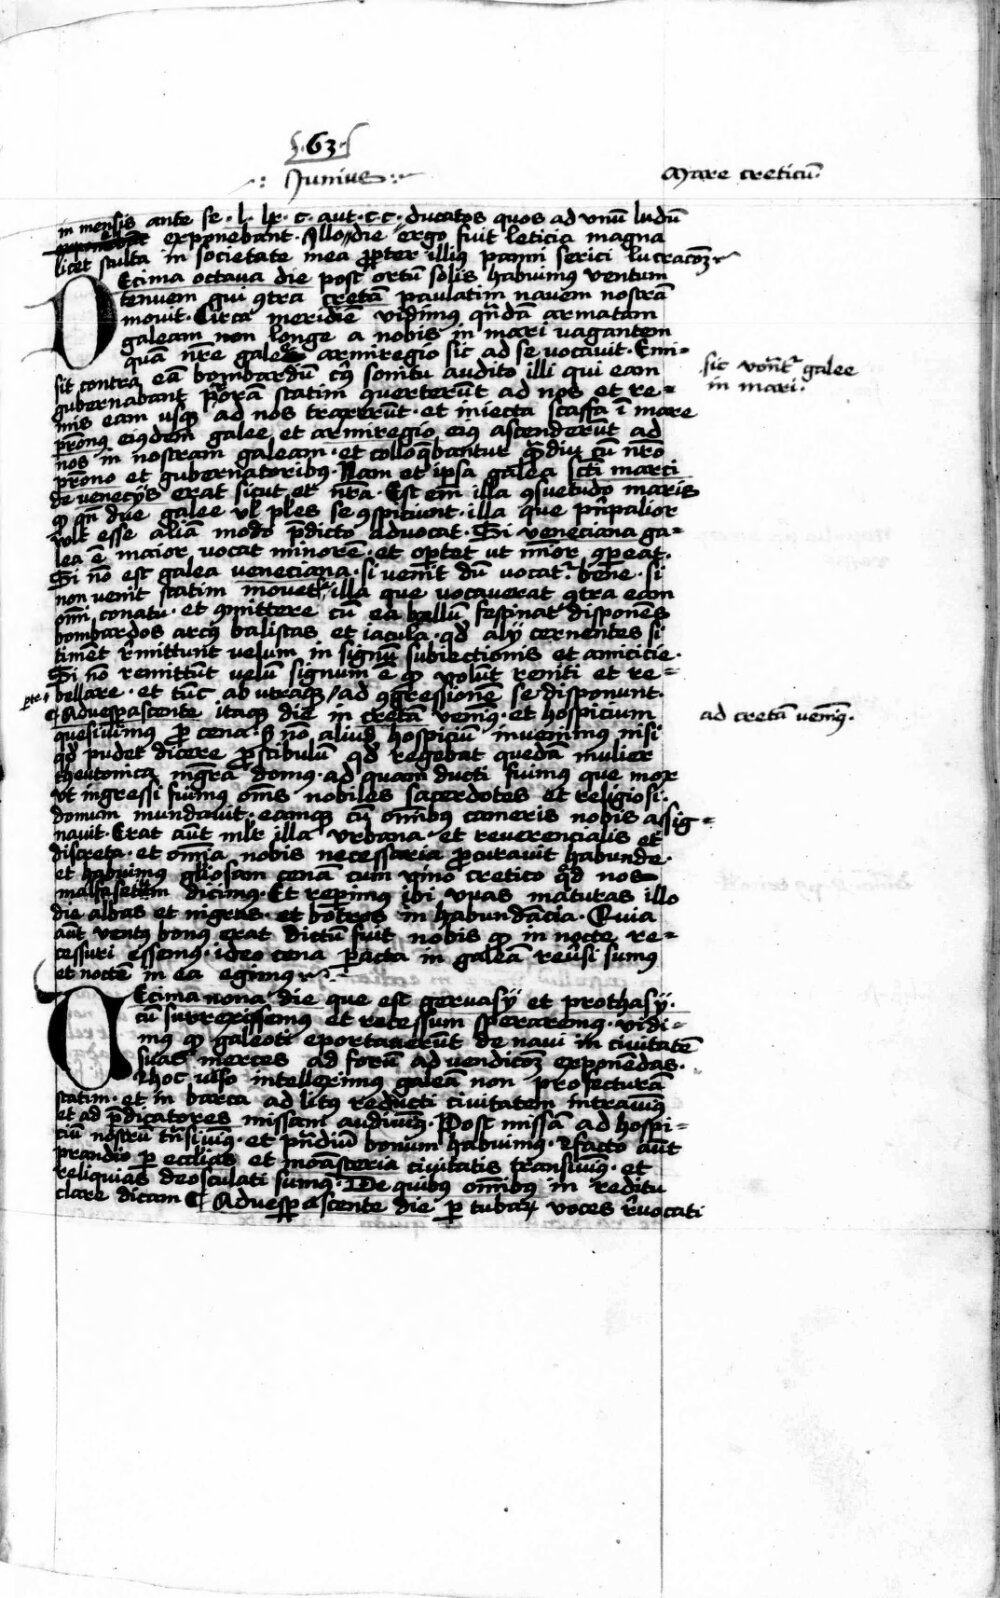 .63.
Junius
Mare creticū.
in mensis ante se . l . lx . c . aut . c c . ducatos quos ad vnū ludū
exponebant . Illo die ergo fuit leticia magna
licet stulta in societate mea propter illius panni serici lucracōꝫ
Decima octava die post ortū solis habuimus ventum
tenuem qui ꝯtra cretā paulatim navem nostrā
movit . Circa meridiē vidimus qn̄dā armatam
galeam non longe a nobis in mari vagantem
quā nr̄e galee armiregio sic ad se vocavit . Emi-
sic vocāt galee
in mari .
sit contra eā bombardū cꝰ sonitu audito illi qui eam
gubernabant proram statim querterūt ad nos et re-
mis eam usqꝫ ad nos traxerūt . et iniecta scaffa ī mare
prōnus eiusdem galee et armiregio eiꝰ ascenderūt ad
nos in nostram galeam . et colloqbantur qͣdiu cū nr̄o
prōno et gubernatoribꝰ . Nam et ipsa galea scti marci
de venecijs erat sicut et nr̄a . Est em̄ illa ꝯsuetudo maris
ꝙ qn̄ due galee vl ples se ꝯspiciunt . illa que prīpalior
vult esse aliā modo p̄dicto advocat . Si veneciana ga-
lea ē maior vocat minorē . et optet ut mīor ꝯpeat .
Si nō est galea veneciana . si venit dū vocatʳ bene . si
non venit statim movetʳ illa que vocaverat ꝯtra eam
omī conatu . et ꝯmittere cū ea bellū festinat disponēs
bombardos arcꝰ balistas et iacula . qd alij cernentes si
timēt r̄mittunt velum in signū subiectionis et amicicie .
Si nō remittūt velū signum ē ꝙ volūt reniti et re-
bellare . et tūc ab utraqꝫ / ad ꝯgressionē se disponunt .
parte
Advesperascente itaqꝫ die in cretā venimꝰ . et hospicium
ad cretā venimꝰ .
quesiuimus pro cena . S nō aliud hospiciū invenimus nisi
qd pudet dicere prostibulū qd regebat quedā mulier
theutonica . ingra domus . ad quam ducti fuimus que mox
vt ingressi fuimus om̄s nobiles sacerdotes et religiosi .
domum mundavit . eamqꝫ cū omībus cameris nobis assig-
navit . Erat aūt mlr illa urbana . et reverencialis et
discreta . et omīa nobis necessaria procuravit habunde .
et habuimus gliosam cena cum vino cretico qd nos
malfasetum dicimus . Et reperimus ibi vvas maturas illo
die albas et nigras . et botros in habundācia . Quia
aūt ventus bonus erat dictū fuit nobis ꝙ in nocte re-
cessuri essemus . ideo cena peracta in galeā reūsi sumus
et noctē in ea egimus .
Decima nona die que est gervasij et prothasij .
cū surrexissemus et recessum speraremꝰ . vidi-
mꝰ ꝙ galeoti eportauerūt de navi in civitatē
suas merces ad forū ad vendicōꝫ exponēdas .
Hoc viso intelleximus galeā non profecturā
statim . et in barca ad litus reducti civitatem intravimꝰ
et ad p̄dicatores missam audivimꝰ . Post missā ad hospi-
ciū nostrū trāsivimꝰ . et prādiū bonum habuimus . Facto aūt
prandio per ecclias et monāsteria civitatis transivimꝰ . et
reliquias deosculati sumus . De quibus omībus in reditu
clare dicam Advesperascente die per tubarum voces r̄vocati